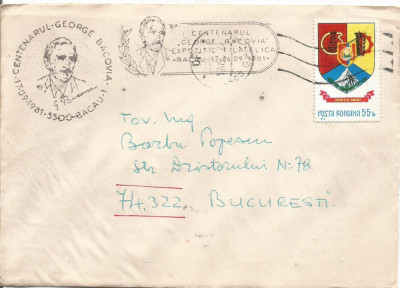 CENTENARUL GEORGE BACOVIA
17.09.1981 · 5500-BACAU-1
CENTENARUL
"GEORGE BACOVIA"
EXPOZITIE FILATELICA
BACAU 17-24.09.1981
POSTA ROMANA 55 b
Tov. Ing
Barbu Popescu
Str Dristorului Nº 78
74.322 BUCURESTI